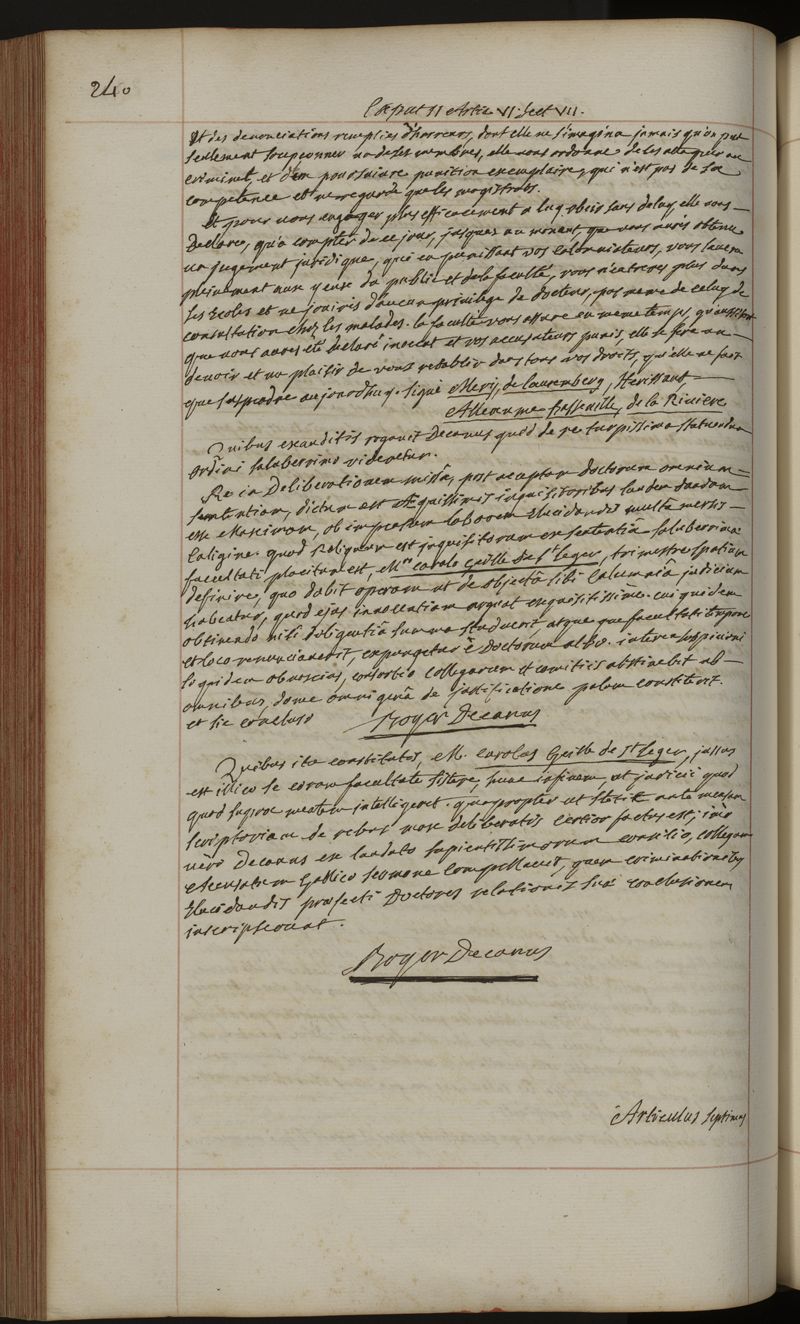 240
Caput II Artic VI. Sect VII.
Et des denonciations remplies d'horreurs, dont elle ne s'imagina jamais qu'on put
seulement soupçonner un de ses membres, elle vous ordonne de les attaquer au
criminel et d'en poursuivre punition exemplaire, qui n'est pas de sa
competence et ne regarde que les magistrats.
Et pour vous engager plus efficacement a luy obeir sans delay elle vous
Declare, qu'a compter de ce jour, jusques au moment, que vous aurés obtenu
un jugement juridique, qui en punissant vos calomniateurs, vous lavera
pleinement aux yeux du public et de la faculté, vous n'entrerés plus dans
ses Ecoles et ne jouirés d'aucun privilege de docteur, pas meme de celuy de
consultation chez les malades. la faculté vous assure en meme temps, qu'aussitost
que vous aures été declaré inocent et vos accusateurs punis, elle se fera un
devoir et un plaisir de vous retablir dans tous vos droits, qu'elle ne fait
que suspendre aujourdhuy. signé Mery, de Lauremberg, Herissant
Alleaume Basseville, de la Riviere
Quibus exauditis rogavit Decanus quid de re turpissima statuendum
ordini saluberrimo videretur.
Re in Deliberationem missâ, post acceptam doctorum omnium
sententiam, dictum est Æquissimis inquisitoribus laudem dandam
esse Maximam, ob impensum laborem Elucidandis multa mersis
Caligine. quod Reliquum est inquisitorum ex sententiâ saluberrimæ
facultati placitum est, Mro carolo Guille De St leger, trimestre spatium
definire, quo dabit operam ut de objectâ sibi Calumniâ judicium
habeatur, quod ejus innocentiam arguat exquisitissime. cui quidem
obtinendo nisi diligentiâ summa studuerit, atque que facultati tempore
et loco renunciaverit, expungetur è Doctorum albo. interea suspicioni
siquidem obnoxius, consortio collegarum et comitiis abstinebit ab
omnibus, donec omnigenâ de justificatione palam constiterit.
et sic conclusi Boyer Decanus
Quibus ita constitutis, M. Carolus Guille de St Leger, jussus
est illico se coram facultate sistere, hunc in finem, ut judicii quod
quod supra mentem intelligeret. quapropter ut stetit ante mensam
scriptoriam de rebus mox deliberatis certior factus est; imò
verò Decanus ex laudato sapientissimorum consilio, collegam
accusatum Gallico sermone compellavit, quem criminationibus
Elucidandis præfecti Doctores relationis suæ conclusionem
inscripserunt.
Boyer Decanus
Articulus septimus